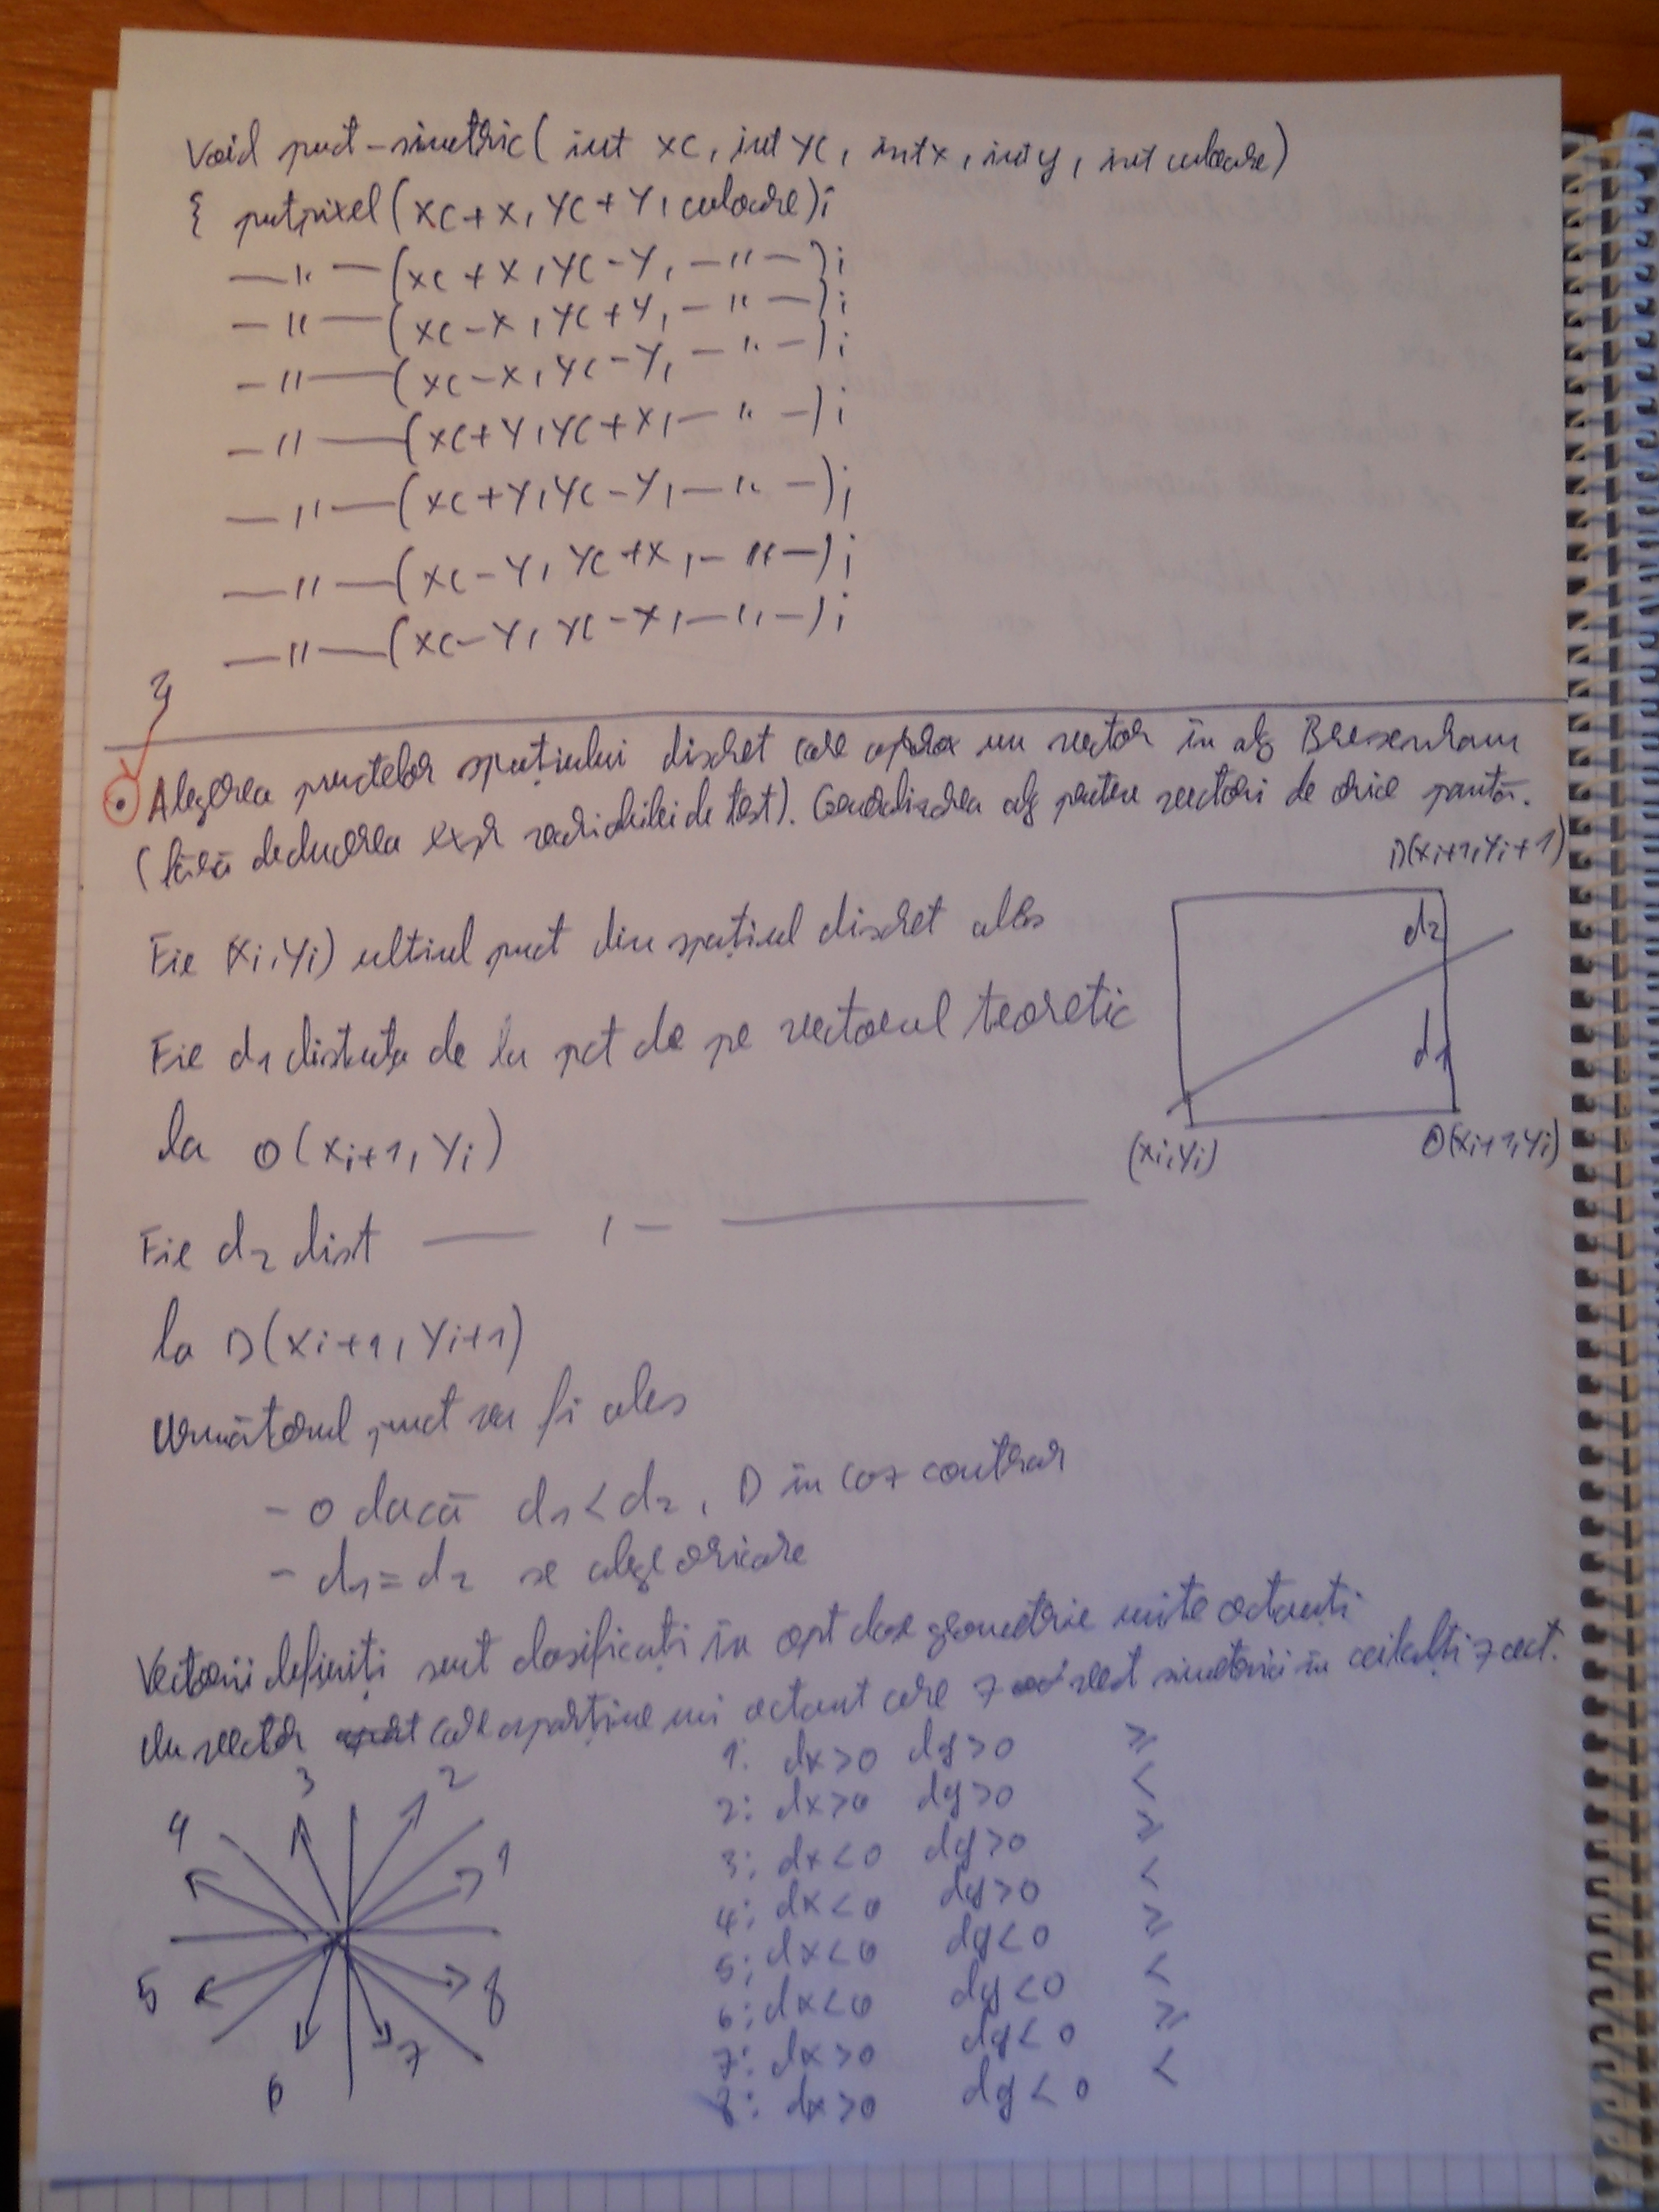 Void puct-simetric( int xc, int yc, int x, int y, int culoare)
{ putpixel(xc+x, yc+y, culoare);
—"—(xc+x, yc-y, —"—);
—"—(xc-x, yc+y, —"—);
—"—(xc-x, yc-y, —"—);
—"—(xc+y, yc+x, —"—);
—"—(xc+y, yc-y, —"—);
—"—(xc-y, yc+x, —"—);
—"—(xc-y, yc-x, —"—);
}
Alegerea punctelor spațiului discret care aprox un vector in alg Bresenham
(fără deducerea expr variabilei de test). Generalizarea alg pentru vectori de orice pantă.
D(xi+1, yi+1)
d2
d1
(xi, yi)
O(xi+1, yi)
Fie (xi, yi) ultiul puct din spațiul discret ales
Fie d1 distața de la pct de pe vectorul teoretic
la O(xi+1, yi)
Fie d2 dist — ı — ———
la D(xi+1, yi+1)
Următorul puct va fi ales
- O dacă d1 < d2, D în caz contrar
- d1 = d2 se alege oricare
Vectorii definiți sunt clasificați în opt clase geometrie numite octanți
Un vector care aparține uni octant are 7 vect simetrici în ceilalți 7 oct.
1: dx>0 dy>0 ≥
2: dx>0 dy>0 <
3: dx<0 dy>0 ≥
4: dx<0 dy>0 <
5: dx<0 dy<0 ≥
6: dx<0 dy<0 <
7: dx>0 dy<0 ≥
8: dx>0 dy<0 <
3 2
4 1
5 8
6 7